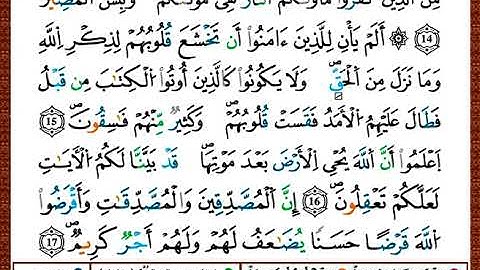 مِنَ الَّذِينَ كَفَرُوا مَأْوَىٰكُمُ النَّارُ هِيَ مَوْلَىٰكُمْ وَبِئْسَ الْمَصِيرُ
(14) أَلَمْ يَأْنِ لِلَّذِينَ ءَامَنُوٓا أَن تَخْشَعَ قُلُوبُهُمْ لِذِكْرِ اِ۬للَّهِ
وَمَا نَزَلَ مِنَ اَ۬لْحَقِّ وَلَا يَكُونُوا كَالَّذِينَ أُوتُوا الْكِتَٰبَ مِن قَبْلُ
فَطَالَ عَلَيْهِمُ الْأَمَدُ فَقَسَتْ قُلُوبُهُمْ وَكَثِيرٌ مِّنْهُمْ فَٰسِقُونَ (15)
اِعْلَمُوٓا أَنَّ اَ۬للَّهَ يُحْيِ اِ۬لْأَرْضَ بَعْدَ مَوْتِهَا قَدْ بَيَّنَّا لَكُمُ الْأٓيَٰتِ
لَعَلَّكُمْ تَعْقِلُونَ (16) إِنَّ اَ۬لْمُصَّدِّقِينَ وَالْمُصَّدِّقَٰتِ وَأَقْرَضُوا
اُ۬للَّهَ قَرْضًا حَسَنًا يُضَٰعَفُ لَهُمْ وَلَهُمْ أَجْرٌ كَرِيمٌ (17)